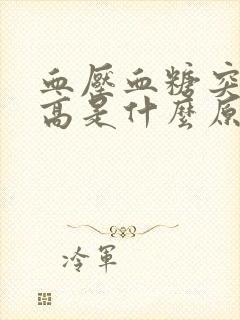 血壓血糖突
高是什麼原
冷軍